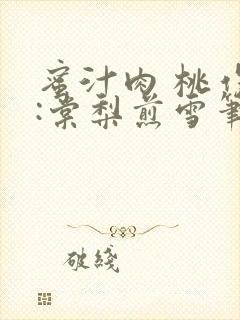 蜜汁肉桃
:棠梨煎雪筆
破綫